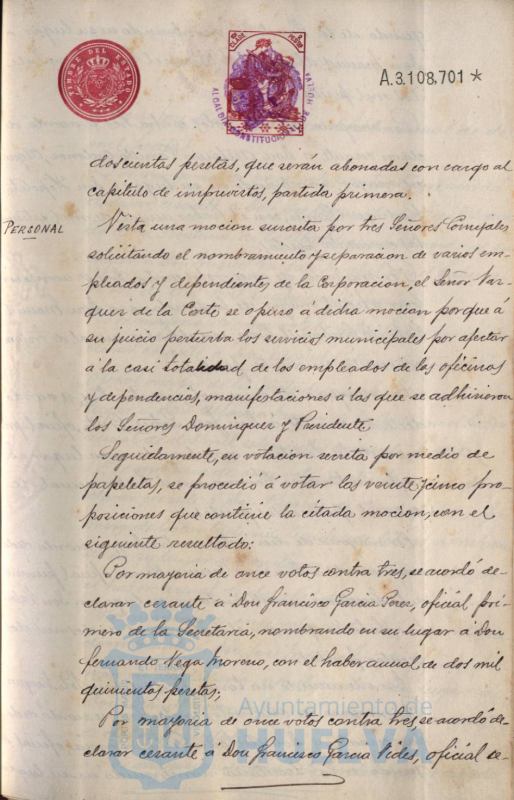 TIMBRE DEL ESTADO
9ª CLASE
PESETA
ALCALDIA CONSTITUCIONAL DE HUELVA
A.3.108,701 *
doscientas pesetas, que serán abonadas con cargo al
capitulo de imprevistos, partida primera.
PERSONAL
Vista una mocion suscrita por tres Señores Concejales
solicitando el nombramiento y separacion de varios em-
pleados y dependientes de la Corporacion, el Señor Vaz-
quez de la Corte se opuso á dicha mocion porque á
su juicio perturba los servicios municipales por afectar
á la casi totalidad de los empleados de las oficinas
y dependencias, manifestaciones á las que se adhirieron
los Señores Dominguez y Presidente.
Seguidamente, en votacion secreta por medio de
papeletas, se procedió á votar las veinte y cinco pro-
posiciones que contiene la citada mocion, con el
siguiente resultado:
Por mayoria de once votos contra tres, se acordó de-
clarar cesante á Don Francisco Garcia Perez, oficial pri-
mero de la Secretaria, nombrando en su lugar á Don
Fernando Vega Moreno, con el haber anual de dos mil
quinientas pesetas;
Por mayoria de once votos contra tres, se acordó de-
clarar cesante á Don Francisco Garcia Vides, oficial se-
Ayuntamiento de
HUELVA